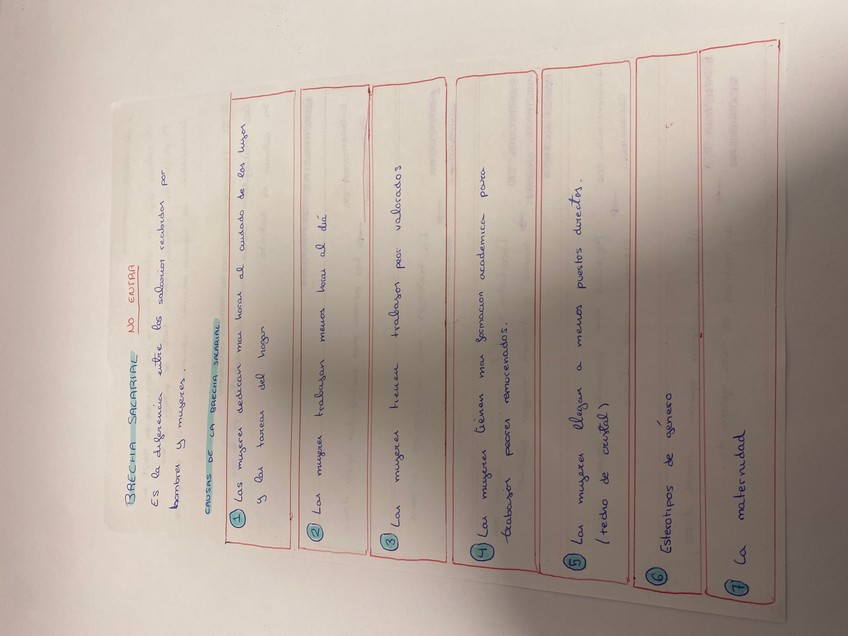 BRECHA SALARIAL NO ENTRA
Es la diferencia entre los salarios recibidos por
hombres y mujeres.
CAUSAS DE LA BRECHA SALARIAL
1 Las mujeres dedican mas horas al cuidado de los hijos
y las tareas del hogar
2 Las mujeres trabajan menos horas al día
3 Las mujeres tienen trabajos peor valorados
4 Las mujeres tienen mas formacion academica para
trabajos peores remunerados.
5 Las mujeres llegan a menos puestos directos.
(techo de cristal)
6 Esterotipos de género
7 La maternidad